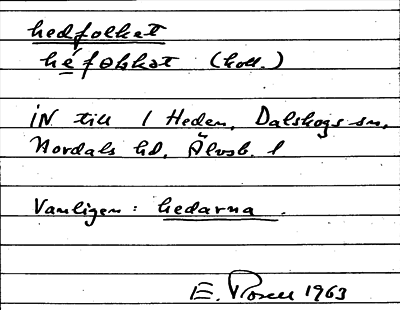 hedfolket
héfolkət (koll.)
iN till 1 Heden, Dalskogs sn,
Nordals hd, Älvsb. l
Vanligen: hedarna.
E. 1963